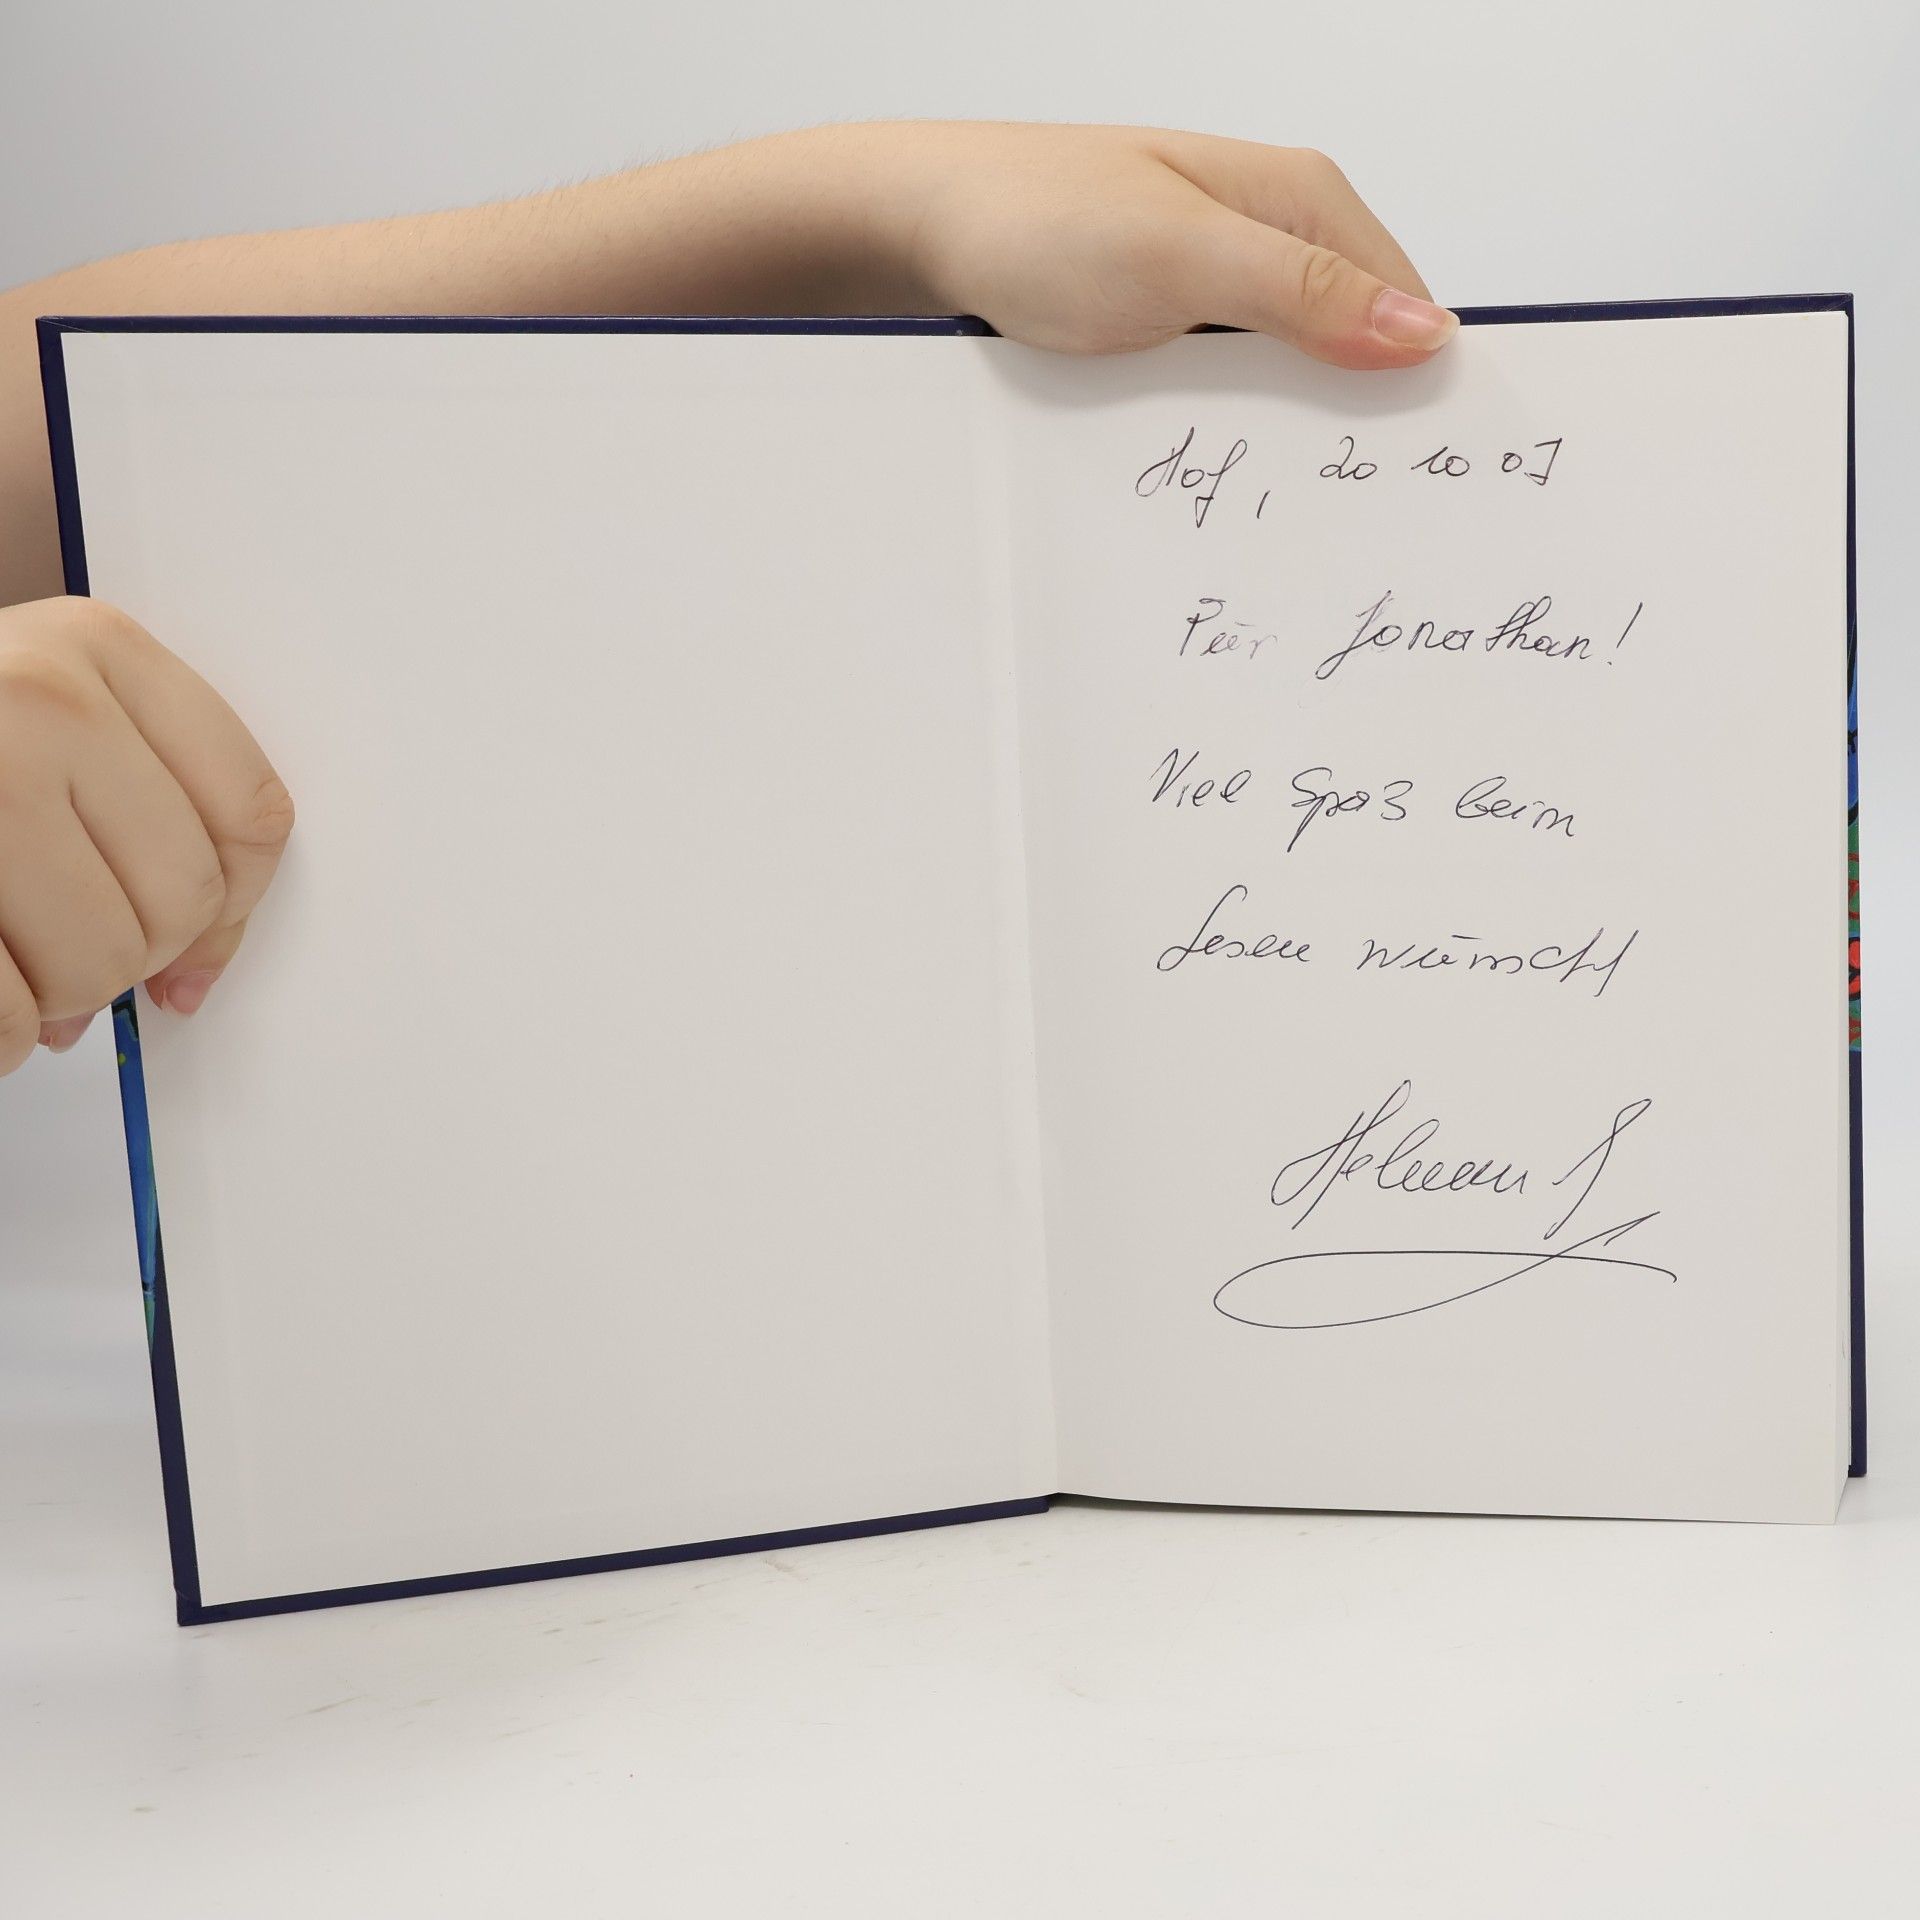 Hof, 20 10 07
Für Jonathan!
Viel Spaß beim
Lesen wünscht